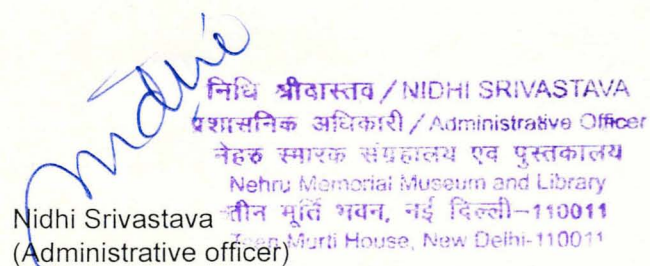 Nidhi
निधि श्रीवास्तव / NIDHI SRIVASTAVA
प्रशासनिक अधिकारी / Administrative Officer
नेहरु स्मारक संग्रहालय एवं पुस्तकालय
Nehru Memorial Museum and Library
तीन मूर्ति भवन, नई दिल्ली-110011
Teen Murti House, New Delhi-110011
Nidhi Srivastava
(Administrative officer)